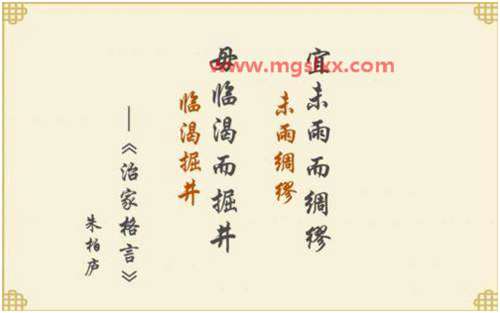 www.mgslxx.com
宜未雨而绸缪
未雨绸缪
毋临渴而掘井
临渴掘井
—《治家格言》
朱柏庐